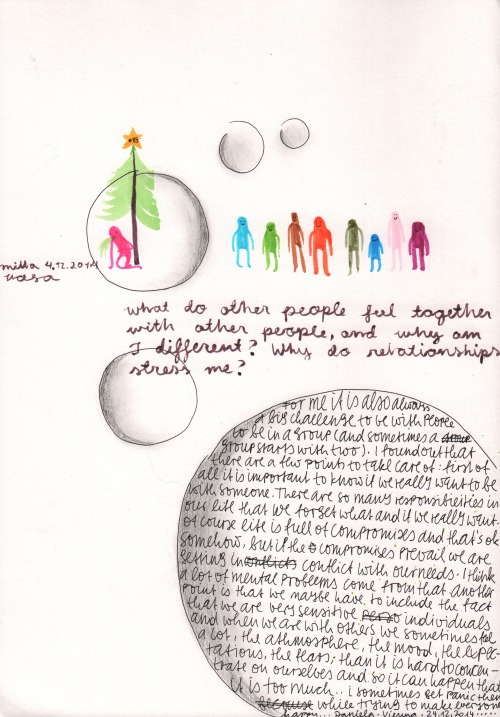 #85
milla 4.12.2014
vasa
what do other people feel together
with other people, and why am
I different? Why do relationships
stress me?
For me it is also always
a big challenge to be with people
to be in a group (and sometimes a
group starts with two). I found out that
there are a few points to take care of: first of
all it is important to know if we really want to be
with someone. There are so many responsibilities in
our life that we forget what and if we really want.
Of course life is full of compromises and that's ok
somehow. But if the compromises prevail we are
getting in conflict with our needs. I think
a lot of mental problems come from that. another
point is that we maybe have to include the fact
that we are very sensitive individuals
and when we are with others we sometimes feel
a lot, the athmosphere, the mood, the expec-
tations, the fears; than it is hard to concen-
trate on ourselves and so it can happen that
it is too much... i sometimes get panic then
while trying to make everyone
happy... Daniela. Vienna. 24.12.2014.....